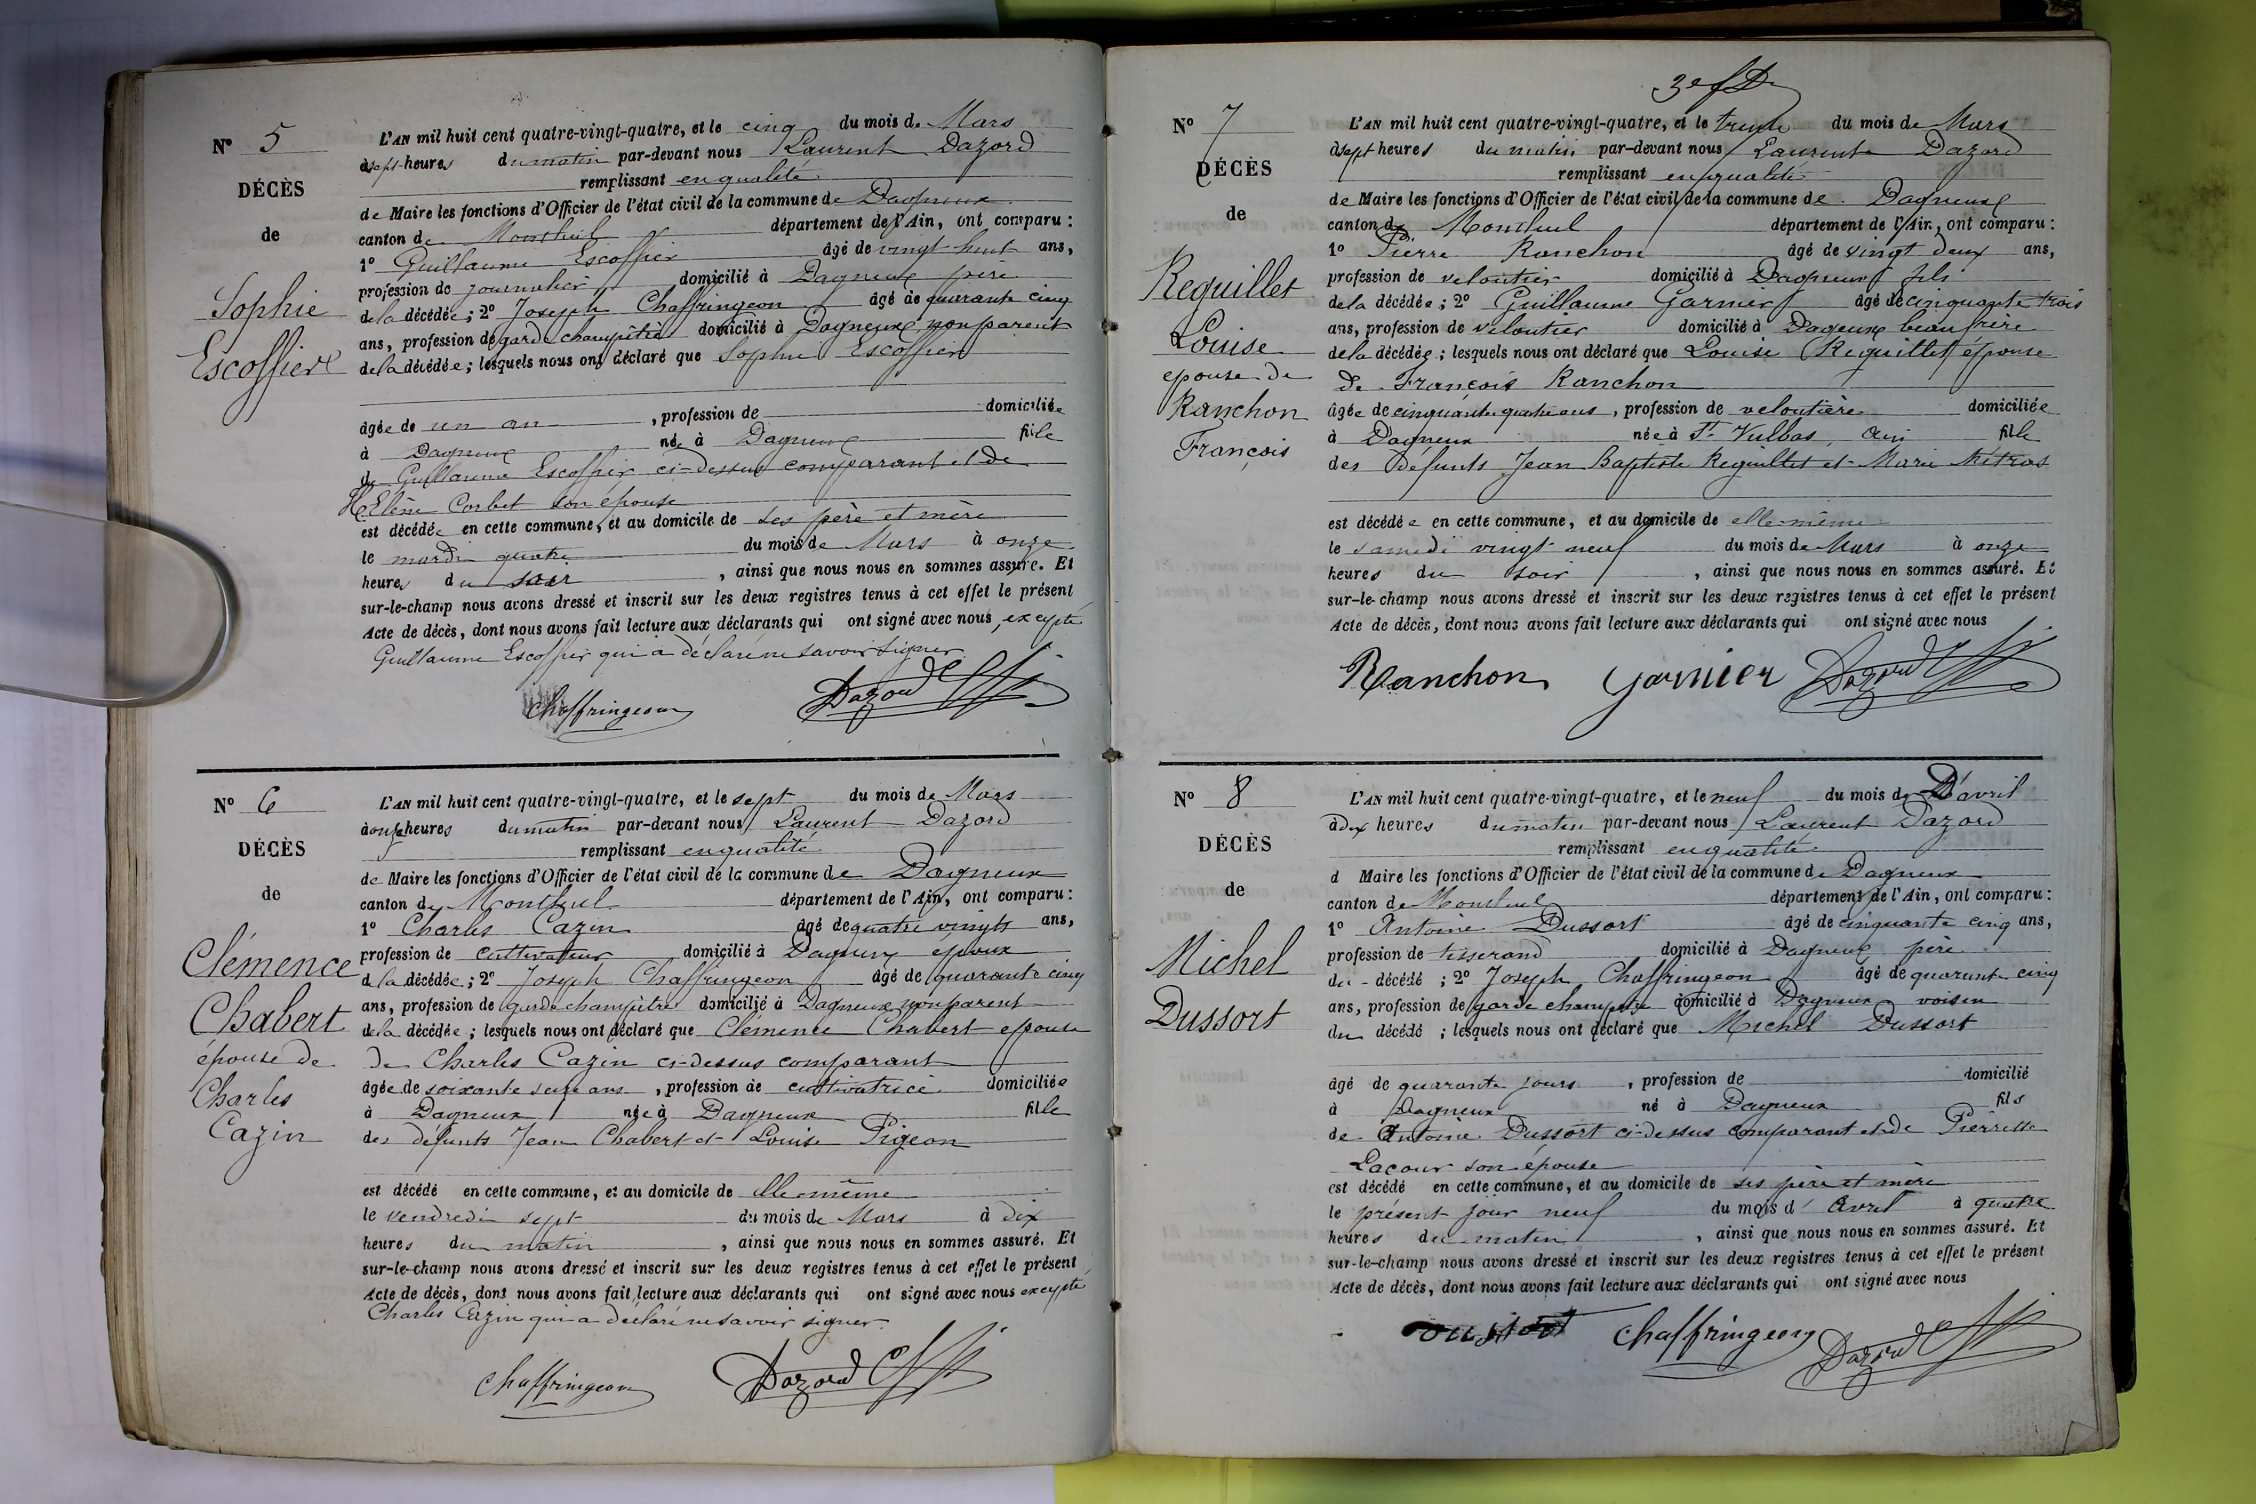 Nº 5
DÉCÈS
de
Sophie
Escoffier
L'AN mil huit cent quatre-vingt-quatre, et le cinq du mois de Mars
à sept heures du matin par-devant nous Laurent Dazord
remplissant en qualité
de Maire les fonctions d'Officier de l'état civil de la commune de Dagneux
canton de Montluel département de l'Ain, ont comparu :
1º Guillaume Escoffier âgé de vingt huit ans,
profession de journalier domicilié à Dagneux père
de la décédée ; 2º Joseph Chaffringeon âgé de quarante cinq
ans, profession de garde champêtre domicilié à Dagneux non parent
de la décédée ; lesquels nous ont déclaré que Sophie Escoffier
âgée de un an , profession de domiciliée
à Dagneux née à Dagneux fille
de Guillaume Escoffier ci-dessus comparant et de
Hélène Corbet son épouse
est décédée en cette commune, et au domicile de ses père et mère
le mardi quatre du mois de Mars à onze
heures du soir , ainsi que nous nous en sommes assuré. Et
sur-le-champ nous avons dressé et inscrit sur les deux registres tenus à cet effet le présent
Acte de décès, dont nous avons fait lecture aux déclarants qui ont signé avec nous, excepté
Guillaume Escoffier qui a déclaré ne savoir signer
Chaffringeon Dazord
Nº 6
DÉCÈS
de
Clémence
Chabert
épouse de
Charles
Cazin
L'AN mil huit cent quatre-vingt-quatre, et le sept du mois de Mars
à onze heures du matin par-devant nous Laurent Dazord
remplissant en qualité
de Maire les fonctions d'Officier de l'état civil de la commune de Dagneux
canton de Montluel département de l'Ain, ont comparu :
1º Charles Cazin âgé de quatre vingts ans,
profession de cultivateur domicilié à Dagneux époux
de la décédée ; 2º Joseph Chaffringeon âgé de quarante cinq
ans, profession de garde champêtre domicilié à Dagneux non parent
de la décédée ; lesquels nous ont déclaré que Clémence Chabert épouse
de Charles Cazin ci-dessus comparant
âgée de soixante seize ans , profession de cultivatrice domiciliée
à Dagneux née à Dagneux fille
des défunts Jean Chabert et Louise Pigeon
est décédé en cette commune, et au domicile de elle même
le vendredi sept du mois de Mars à dix
heures du matin , ainsi que nous nous en sommes assuré. Et
sur-le-champ nous avons dressé et inscrit sur les deux registres tenus à cet effet le présent
Acte de décès, dont nous avons fait lecture aux déclarants qui ont signé avec nous excepté
Charles Cazin qui a déclaré ne savoir signer
Chaffringeon Dazord
3e f D
Nº 7
DÉCÈS
de
Requillet
Louise
epouse de
Ranchon
François
L'AN mil huit cent quatre-vingt-quatre, et le trente du mois de Mars
à sept heures du matin par-devant nous Laurent Dazord
remplissant en qualité
de Maire les fonctions d'Officier de l'état civil de la commune de Dagneux
canton de Montluel département de l'Ain, ont comparu :
1º Pierre Ranchon âgé de vingt deux ans,
profession de veloutier domicilié à Dagneux fils
de la décédée ; 2º Guillaume Garnier âgé de cinquante trois
ans, profession de veloutier domicilié à Dageux beau frère
de la décédée ; lesquels nous ont déclaré que Louise Requillet épouse
de François Ranchon
âgée de cinquante quatre ans , profession de veloutière domiciliée
à Dagneux née à St Vulbas, Ain fille
des défunts Jean Baptiste Requillet et Marie Métras
est décédée en cette commune, et au domicile de elle même
le samedi vingt neuf du mois de Mars à onze
heures du soir , ainsi que nous nous en sommes assuré. Et
sur-le-champ nous avons dressé et inscrit sur les deux registres tenus à cet effet le présent
Acte de décès, dont nous avons fait lecture aux déclarants qui ont signé avec nous
Ranchon Garnier Dazord
Nº 8
DÉCÈS
de
Michel
Dussort
L'AN mil huit cent quatre-vingt-quatre, et le neuf du mois de D'avril
à dix heures du matin par-devant nous Laurent Dazord
remplissant en qualité
d Maire les fonctions d'Officier de l'état civil de la commune de Dagneux
canton de Montluel département de l'Ain, ont comparu :
1º Antoine Dussort âgé de cinquante cinq ans,
profession de tisserand domicilié à Dagneux père
du décédé ; 2º Joseph Chaffringeon âgé de quarante cinq
ans, profession de garde champêtre domicilié à Dagneux voisin
du décédé ; lesquels nous ont déclaré que Michel Dussort
âgé de quarante jours , profession de domicilié
à Dagneux né à Dagneux fils
de Antoine Dussort ci-dessus comparant et de Pierrette
Lacour son épouse
est décédé en cette commune, et au domicile de ses père et mère
le présent jour neuf du mois d' Avril à quatre
heures du matin , ainsi que nous nous en sommes assuré. Et
sur-le-champ nous avons dressé et inscrit sur les deux registres tenus à cet effet le présent
Acte de décès, dont nous avons fait lecture aux déclarants qui ont signé avec nous
Chaffringeon Dazord